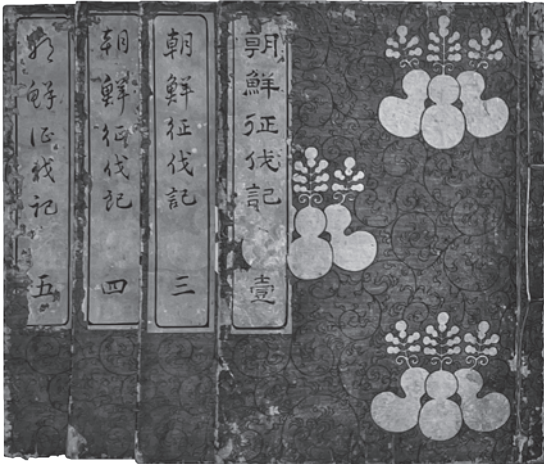 朝鮮征伐記 壹
朝鮮征伐記 三
朝鮮征伐記 四
朝鮮征伐記 五